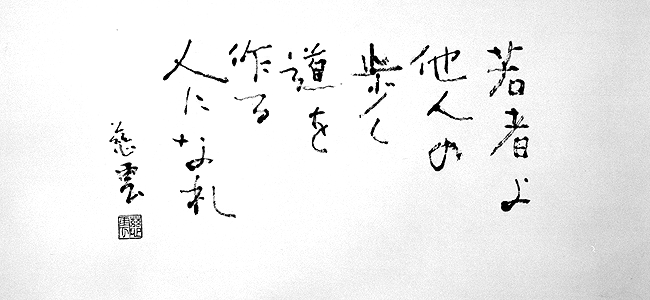 若者よ
他人の
歩く
道を
作る
人になれ
慈雲